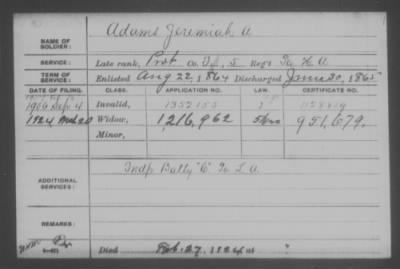 NAME OF SOLDIER: Adams Jeremiah A
SERVICE: Late rank, Prvt Co. Reg't Pa H A
TERM OF SERVICE: Enlisted Aug 22, 1864 Discharged June 30, 1865
DATE OF FILING. CLASS. APPLICATION NO. LAW. CERTIFICATE NO.
1906 Sep 4 Invalid, 1352155 1128819
1924 Widow, 1,216,962 951,679.
Minor,
ADDITIONAL SERVICES: Indp Batty "C" Pa L A
REMARKS:
Died Feb. 27, 1924 at "